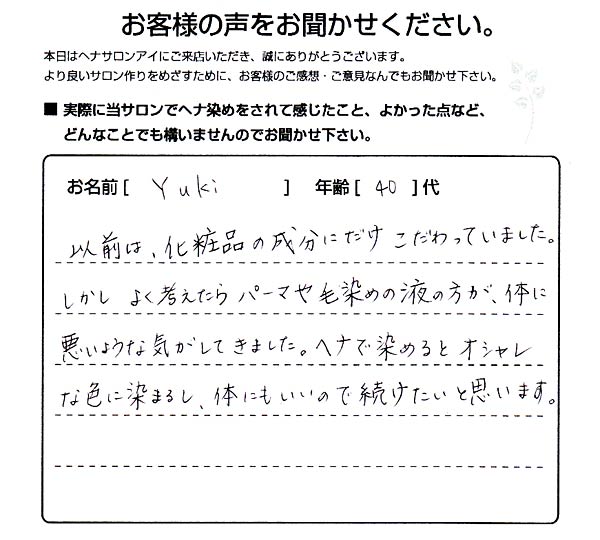 お客様の声をお聞かせください。
本日はヘナサロンアイにご来店いただき、誠にありがとうございます。
より良いサロン作りをめざすために、お客様のご感想・ご意見なんでもお聞かせ下さい。
■ 実際に当サロンでヘナ染めをされて感じたこと、よかった点など、
どんなことでも構いませんのでお聞かせ下さい。
お名前 [ Yuki ] 年齢 [ 40 ] 代
以前は、化粧品の成分にだけ こだわっていました。
しかし よく考えたら パーマや毛染めの液の方が、体に
悪いような気がしてきました。ヘナで染めると オシャレ
な色に染まるし、体にもいいので続けたいと思います。